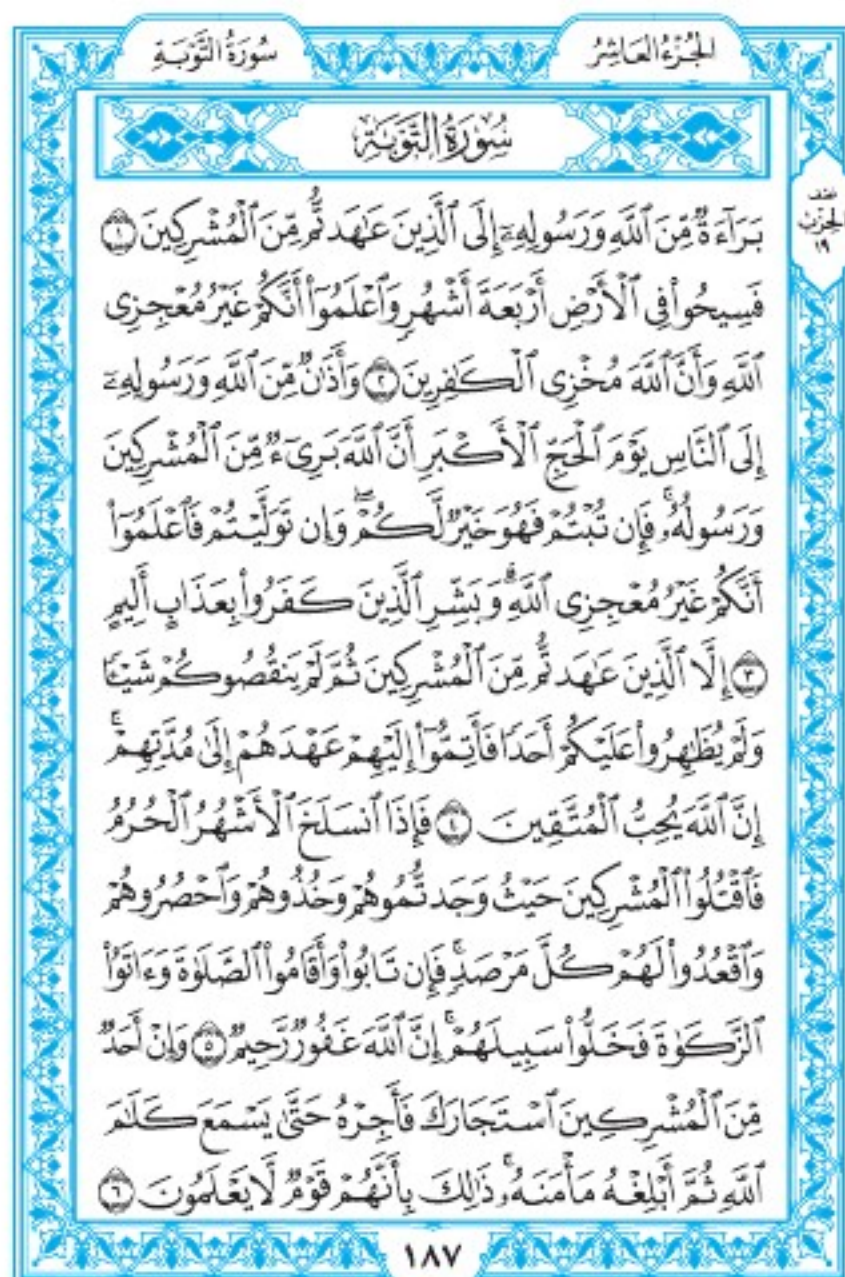 الجُزْءُ العَاشِرُ
سُورَةُ التَّوْبَةِ
سُورَةُ التَّوْبَةِ
نصف
الحِزْب
١٩
بَرَآءَةٌ مِّنَ ٱللَّهِ وَرَسُولِهِۦٓ إِلَى ٱلَّذِينَ عَٰهَدتُّم مِّنَ ٱلْمُشْرِكِينَ ١
فَسِيحُوا۟ فِى ٱلْأَرْضِ أَرْبَعَةَ أَشْهُرٍ وَٱعْلَمُوٓا۟ أَنَّكُمْ غَيْرُ مُعْجِزِى
ٱللَّهِ وَأَنَّ ٱللَّهَ مُخْزِى ٱلْكَٰفِرِينَ ٢ وَأَذَٰنٌ مِّنَ ٱللَّهِ وَرَسُولِهِۦٓ
إِلَى ٱلنَّاسِ يَوْمَ ٱلْحَجِّ ٱلْأَكْبَرِ أَنَّ ٱللَّهَ بَرِىٓءٌ مِّنَ ٱلْمُشْرِكِينَ
وَرَسُولُهُۥ ۚ فَإِن تُبْتُمْ فَهُوَ خَيْرٌ لَّكُمْ ۖ وَإِن تَوَلَّيْتُمْ فَٱعْلَمُوٓا۟
أَنَّكُمْ غَيْرُ مُعْجِزِى ٱللَّهِ ۗ وَبَشِّرِ ٱلَّذِينَ كَفَرُوا۟ بِعَذَابٍ أَلِيمٍ
٣ إِلَّا ٱلَّذِينَ عَٰهَدتُّم مِّنَ ٱلْمُشْرِكِينَ ثُمَّ لَمْ يَنقُصُوكُمْ شَيْـًٔا
وَلَمْ يُظَٰهِرُوا۟ عَلَيْكُمْ أَحَدًا فَأَتِمُّوٓا۟ إِلَيْهِمْ عَهْدَهُمْ إِلَىٰ مُدَّتِهِمْ ۚ
إِنَّ ٱللَّهَ يُحِبُّ ٱلْمُتَّقِينَ ٤ فَإِذَا ٱنسَلَخَ ٱلْأَشْهُرُ ٱلْحُرُمُ
فَٱقْتُلُوا۟ ٱلْمُشْرِكِينَ حَيْثُ وَجَدتُّمُوهُمْ وَخُذُوهُمْ وَٱحْصُرُوهُمْ
وَٱقْعُدُوا۟ لَهُمْ كُلَّ مَرْصَدٍ ۚ فَإِن تَابُوا۟ وَأَقَامُوا۟ ٱلصَّلَوٰةَ وَءَاتَوُا۟
ٱلزَّكَوٰةَ فَخَلُّوا۟ سَبِيلَهُمْ ۚ إِنَّ ٱللَّهَ غَفُورٌ رَّحِيمٌ ٥ وَإِنْ أَحَدٌ
مِّنَ ٱلْمُشْرِكِينَ ٱسْتَجَارَكَ فَأَجِرْهُ حَتَّىٰ يَسْمَعَ كَلَٰمَ
ٱللَّهِ ثُمَّ أَبْلِغْهُ مَأْمَنَهُۥ ۚ ذَٰلِكَ بِأَنَّهُمْ قَوْمٌ لَّا يَعْلَمُونَ ٦
١٨٧